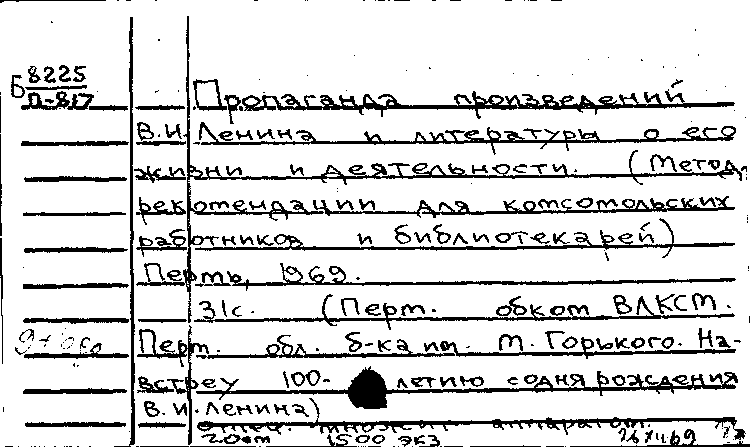 Б 8225
П-817
Пропаганда произведений
В.И. Ленина и литературы о его
жизни и деятельности. (Метод.
рекомендации для комсомольских
работников и библиотекарей)
Пермь, 1969.
31с. (Перм. обком ВЛКСМ.
Перм. обл. б-ка им. М. Горького. На-
встречу 100-летию со дня рождения
В.И. Ленина)
множит. аппаратом.
20см 1500 экз 26 XII 69